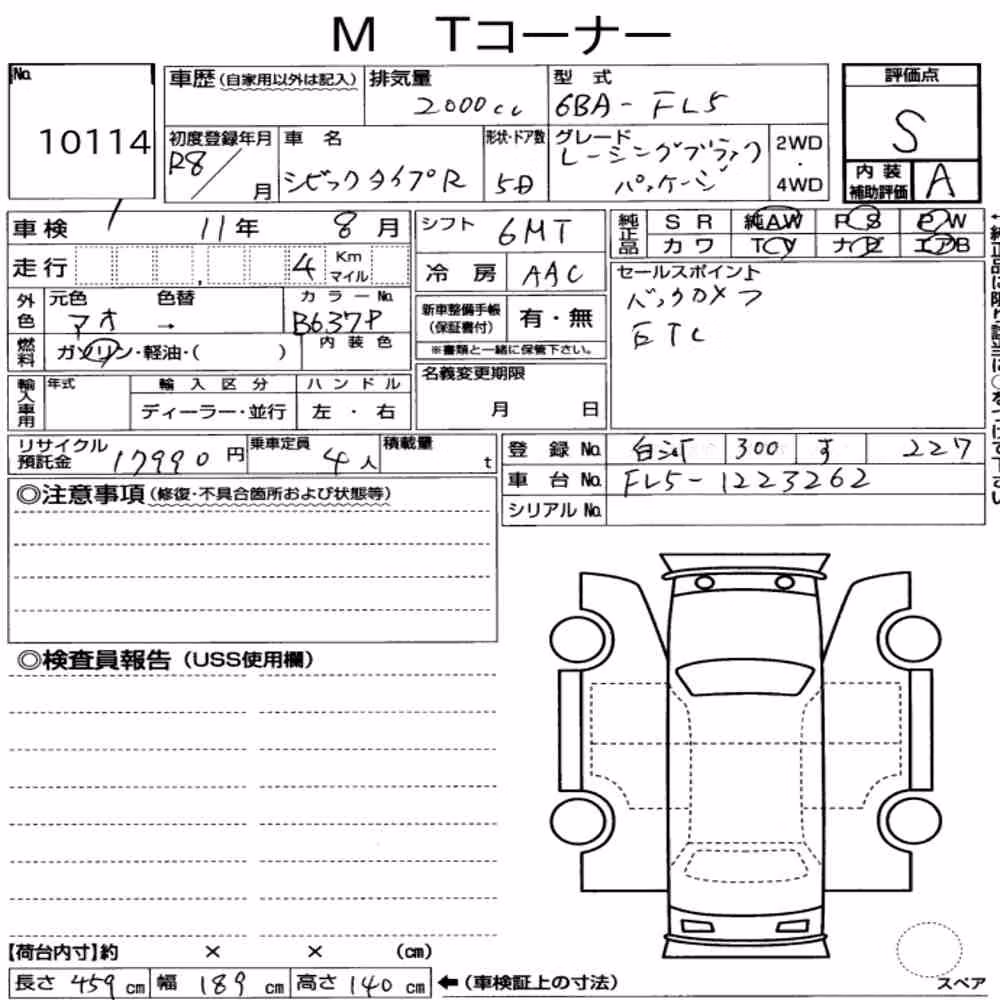 M Tコーナー
No. 10114
車歴(自家用以外は記入)
排気量 2000cc
型式 6BA-FL5
評価点 S
初度登録年月 R8/ 月
車名 シビックタイプR
形状・ドア数 5D
グレード レーシングブラックパッケージ
2WD・4WD
内装補助評価 A
車検 11年 8月
シフト 6MT
純正品 SR 純AW PS PW
カワ TV ナビ エアB
走行 4 Km マイル
冷房 AAC
セールスポイント
バックカメラ
ETC
外色 元色 色替 カラーNo.
アオ → B637P
新車整備手帳(保証書付) 有・無
※書類と一緒に保管下さい。
燃料 ガソリン・軽油・( ) 内装色
名義変更期限 月 日
輸入車用 年式 輸入区分 ハンドル
ディーラー・並行 左・右
リサイクル預託金 17990円
乗車定員 4人
積載量 t
登録No. 300 す 227
車台No. FL5-1223262
シリアルNo.
◎注意事項(修復・不具合箇所および状態等)
◎検査員報告(USS使用欄)
【荷台内寸】約 × × (cm)
長さ 459cm 幅 189cm 高さ 140cm ←(車検証上の寸法)
スペア